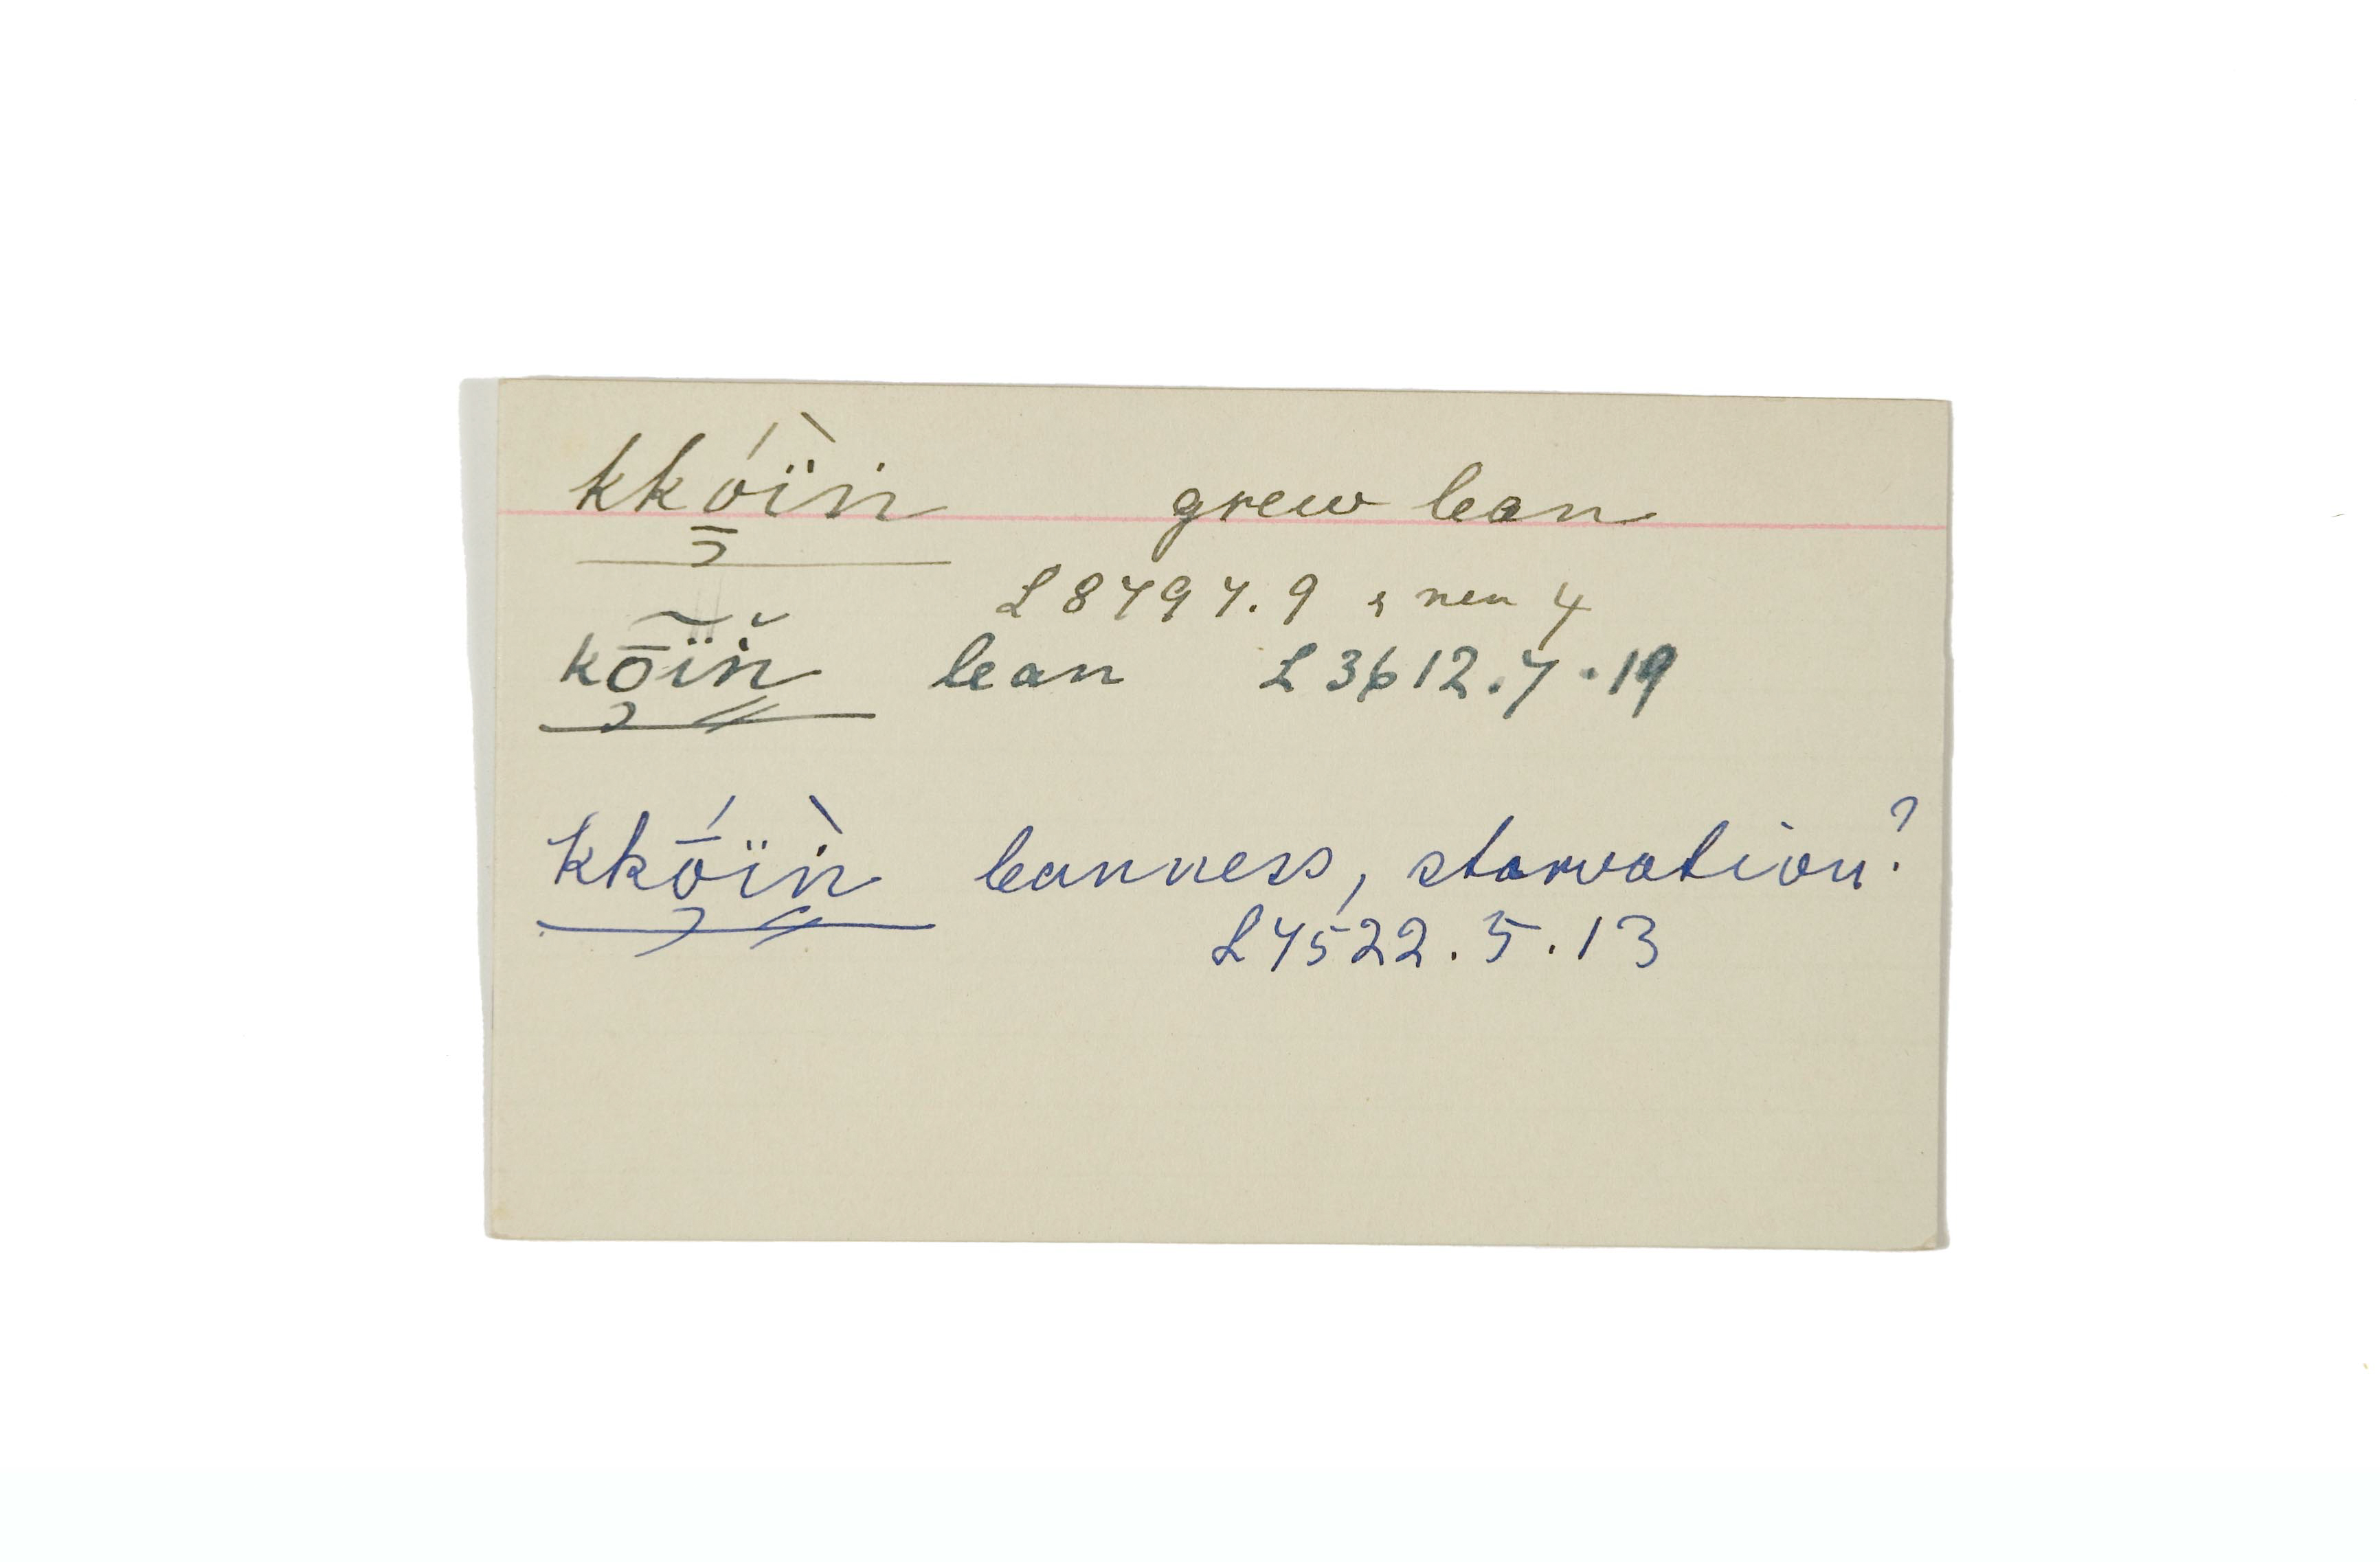 kkóïǹ grew lean
L 8797.9 & rev 4
kōïn lean L 3612.7.19
kkṓïǹ leanness, starvation?
L 7522.5.13